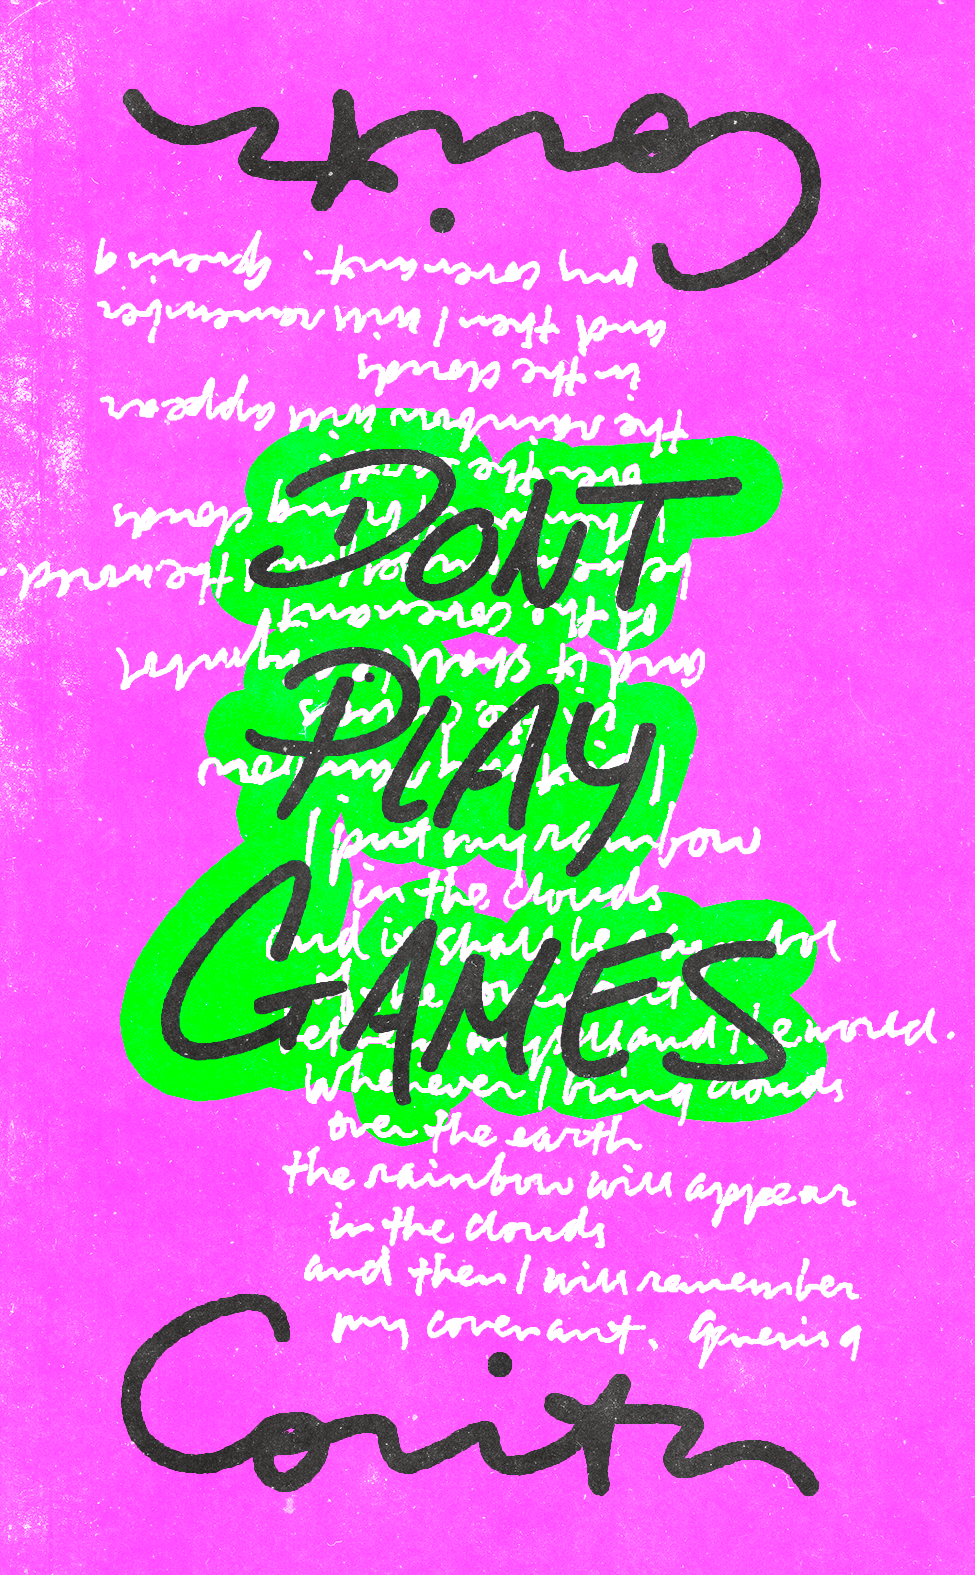 Corita
my covenant. Genesis 9
and then I will remember
in the clouds
the rainbow will appear
over the earth
Whenever I bring clouds
between myself and the world.
of the covenant
and it shall be a symbol
in the clouds
I put my rainbow
DONT
PLAY
GAMES
I put my rainbow
in the clouds
and it shall be a symbol
of the covenant
between myself and the world.
Whenever I bring clouds
over the earth
the rainbow will appear
in the clouds
and then I will remember
my covenant. Genesis 9
Corita